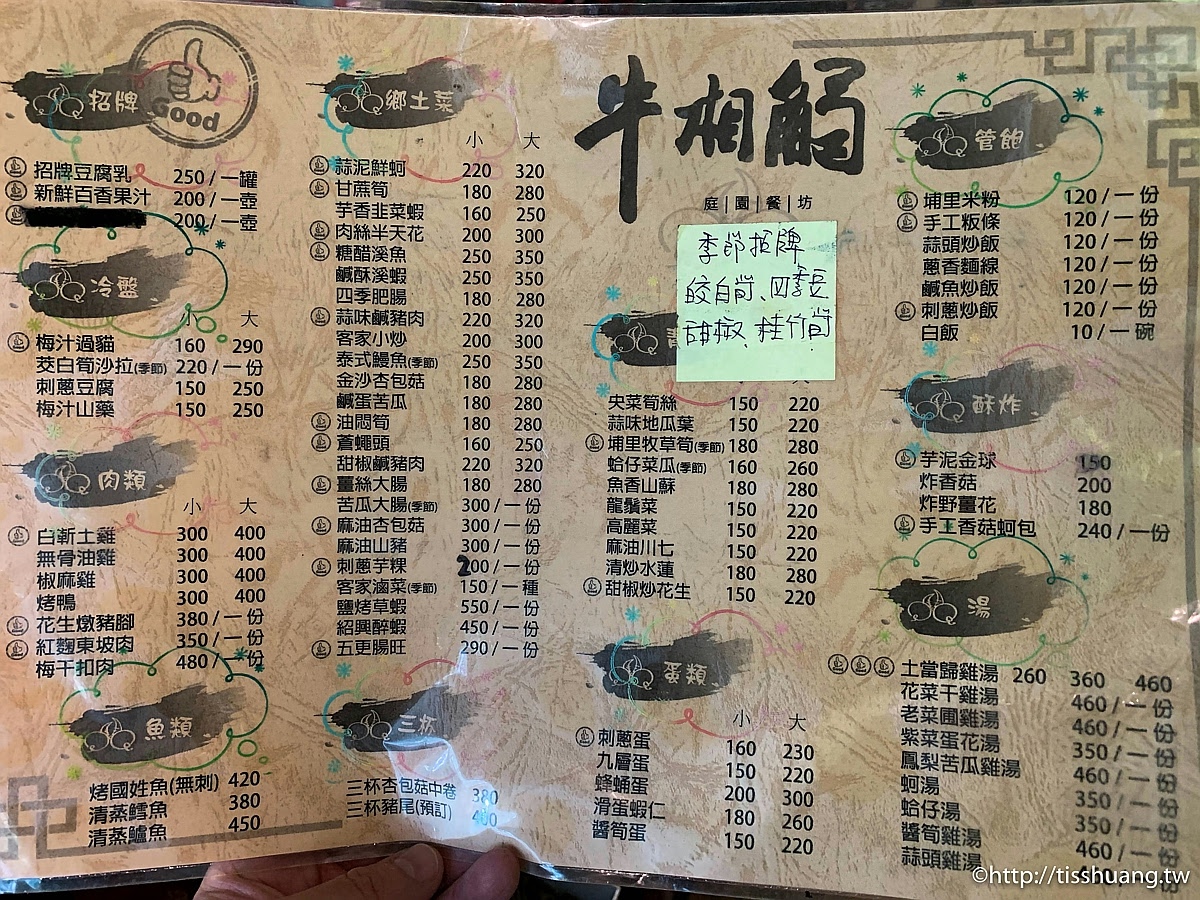 招牌
Good
招牌豆腐乳 250/一罐
新鮮百香果汁 200/一壺
200/一壺
冷盤
小 大
梅汁過貓 160 290
茭白筍沙拉(季節) 220/一份
刺蔥豆腐 150 250
梅汁山藥 150 250
肉類
小 大
白斬土雞 300 400
無骨油雞 300 400
椒麻雞 300 400
烤鴨 300 400
花生燉豬腳 380/一份
紅麴東坡肉 350/一份
梅干扣肉 480/一份
魚類
烤國姓魚(無刺) 420
清蒸鱈魚 380
清蒸鱸魚 450
鄉土菜
小 大
蒜泥鮮蚵 220 320
甘蔗筍 180 280
芋香韭菜蝦 160 250
肉絲半天花 200 300
糖醋溪魚 250 350
鹹酥溪蝦 250 350
四季肥腸 180 280
蒜味鹹豬肉 220 320
客家小炒 200 300
泰式鰻魚(季節) 250 350
金沙杏包菇 180 280
鹹蛋苦瓜 180 280
油悶筍 180 280
蒼蠅頭 160 250
甜椒鹹豬肉 220 320
薑絲大腸 180 280
苦瓜大腸(季節) 300/一份
麻油杏包菇 300/一份
麻油山豬 300/一份
刺蔥芋粿 200/一份
客家滷菜(季節) 150/一種
鹽烤草蝦 550/一份
紹興醉蝦 450/一份
五更腸旺 290/一份
三杯
三杯杏包菇中卷 380
三杯豬尾(預訂) 400
牛相觸
庭|園|餐|坊
季節招牌
皎白笋、四季豆
甜椒、桂竹笋
大
夬菜筍絲 150 220
蒜味地瓜葉 150 220
埔里牧草筍(季節) 180 280
蛤仔菜瓜(季節) 160 260
魚香山蘇 180 280
龍鬚菜 150 220
高麗菜 150 220
麻油川七 150 220
清炒水蓮 180 280
甜椒炒花生 150 220
蛋類
小 大
刺蔥蛋 160 230
九層蛋 150 220
蜂蛹蛋 200 300
滑蛋蝦仁 180 260
醬筍蛋 150 220
管飽
埔里米粉 120/一份
手工粄條 120/一份
蒜頭炒飯 120/一份
蔥香麵線 120/一份
鹹魚炒飯 120/一份
刺蔥炒飯 120/一份
白飯 10/一碗
酥炸
芋泥金球 150
炸香菇 200
炸野薑花 180
手工香菇蚵包 240/一份
湯
土當歸雞湯 260 360 460
花菜干雞湯 460/一份
老菜圃雞湯 460/一份
紫菜蛋花湯 350/一份
鳳梨苦瓜雞湯 460/一份
蚵湯 350/一份
蛤仔湯 350/一份
醬筍雞湯 460/一份
蒜頭雞湯
©http://tisshuang.tw